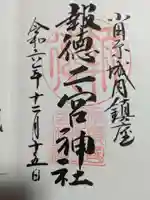 小田原城内鎮座
報徳二宮神社
令和六年十二月十五日